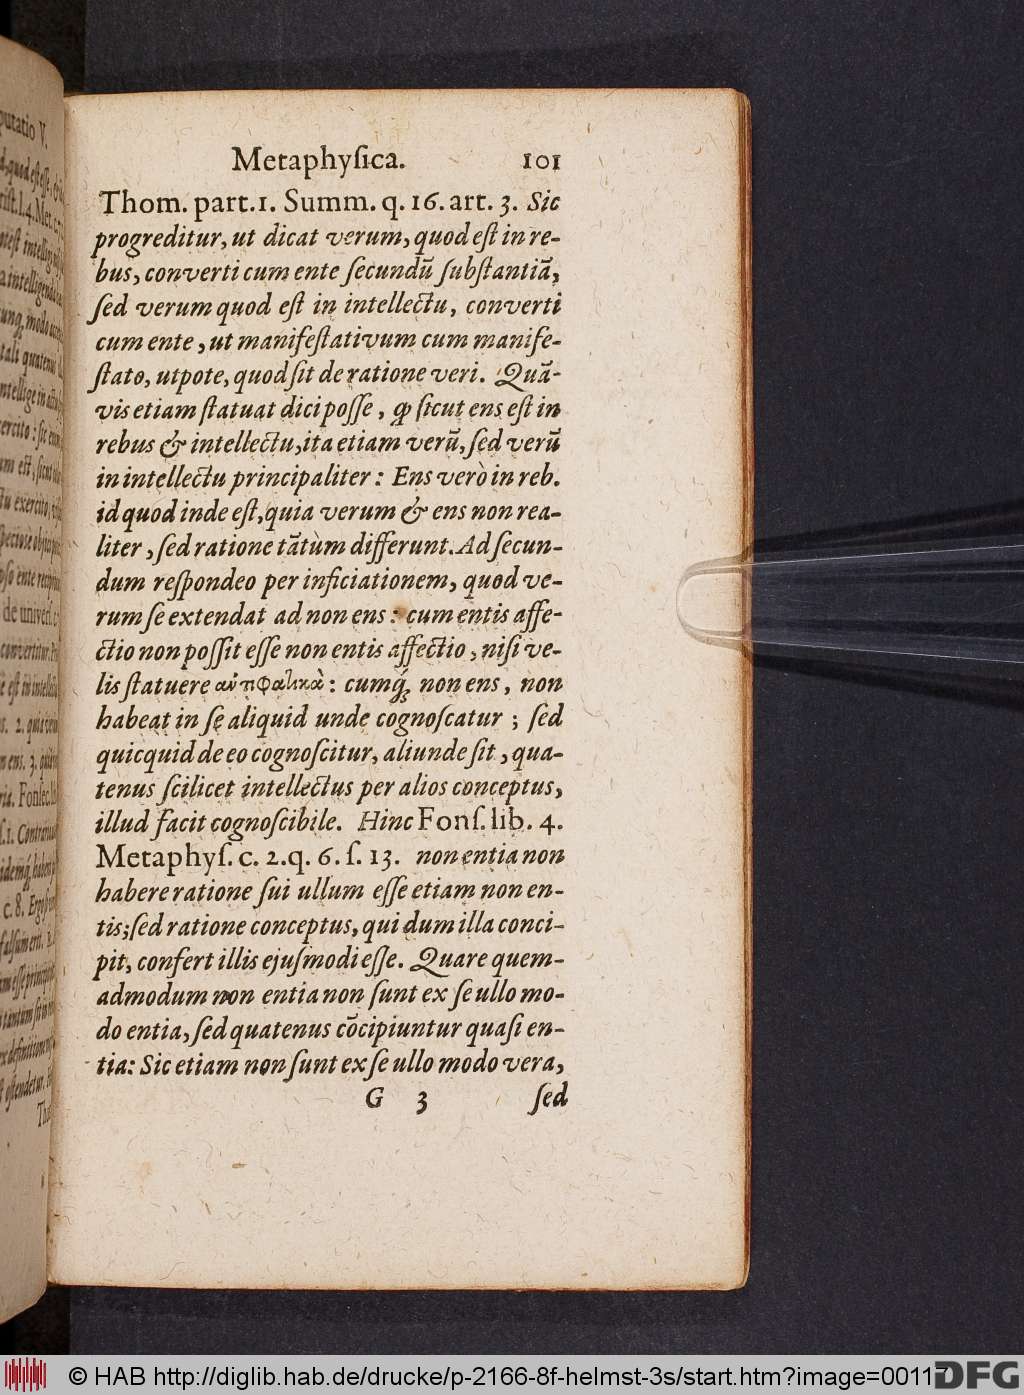 Metaphyſica. 101
Thom. part. 1. Summ. q. 16. art. 3. Sic
progreditur, ut dicat verum, quod eſt in re-
bus, converti cum ente ſecundũ ſubſtantiã,
ſed verum quod eſt in intellectu, converti
cum ente, ut manifeſtativum cum manife-
ſtato, utpote, quod ſit de ratione veri. Quã-
vis etiam ſtatuat dici poſſe, ꝙ ſicut ens eſt in
rebus & intellectu, ita etiam verũ, ſed verũ
in intellectu principaliter: Ens verò in reb.
id quod inde eſt, quia verum & ens non rea-
liter, ſed ratione tãtùm differunt. Ad ſecun-
dum reſpondeo per inficiationem, quod ve-
rum ſe extendat ad non ens: cum entis affe-
ctio non poſſit eſſe non entis affectio, niſi ve-
lis ſtatuere : cumq́; non ens, non
habeat in ſe aliquid unde cognoſcatur; ſed
quicquid de eo cognoſcitur, aliunde ſit, qua-
tenus ſcilicet intellectus per alios conceptus,
illud facit cognoſcibile. Hinc Fonſ. lib. 4.
Metaphyſ. c. 2. q. 6. ſ. 13. non entia non
habere ratione ſui ullum eſſe etiam non en-
tis; ſed ratione conceptus, qui dum illa conci-
pit, confert illis ejuſmodi eſſe. Quare quem-
admodum non entia non ſunt ex ſe ullo mo-
do entia, ſed quatenus cõcipiuntur quaſi en-
tia: Sic etiam non ſunt ex ſe ullo modo vera,
G 3 ſed
© HAB http://diglib.hab.de/drucke/p-2166-8f-helmst-3s/start.htm?image=00117
DFG